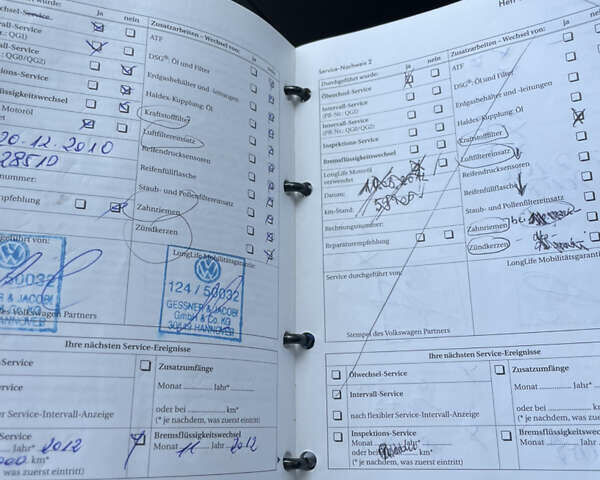 wurde:
ja
nein
Zusatzarbeiten – Wechsel von:
ja
nein
Ölwechsel-Service
Intervall-Service
r.: QG1)
ATF
DSG®: Öl und Filter
l-Service
r.: QG0/QG2)
Erdgasbehälter und -leitungen
ktions-Service
Haldex-Kupplung: Öl
üssigkeitswechsel
Kraftstofffilter
Motoröl
et
Luftfiltereinsatz
20.12.2010
Reifendruckensoren
28510
Reifenfüllflasche
nummer:
Staub- und Pollenfiltereinsatz
mpfehlung
Zahnriemen
Zündkerzen
geführt von:
LongLife Mobilitätsgarantie:
50032
R & JACOBI
HANNOVER
124 / 50032
GESSNER & JACOBI
GmbH & Co. KG
30519 HANNOVER
des Volkswagen Partners
Ihre nächsten Service-Ereignisse
-Service
Zusatzumfänge
Service
Monat .......... Jahr*
er Service-Intervall-Anzeige
oder bei .......... km*
(* je nachdem, was zuerst eintritt)
Service
Jahr* 2012
Bremsflüssigkeitswechsel
Monat 12 Jahr* 2012
000 km*
was zuerst eintritt)
Service-Nachweis 2
Durchgeführt wurde:
ja
nein
Zusatzarbeiten – Wechsel von:
ja
nein
Ölwechsel-Service
ATF
Intervall-Service
(PR-Nr.: QG1)
DSG®: Öl und Filter
Intervall-Service
(PR-Nr.: QG0/QG2)
Erdgasbehälter und -leitungen
Inspektions-Service
Haldex-Kupplung: Öl
Bremsflüssigkeitswechsel
Kraftstofffilter
LongLife Motoröl
verwendet
Luftfiltereinsatz
Datum:
Reifendrucksensoren
Km-Stand:
Reifenfüllflasche
Rechnungsnummer:
Staub- und Pollenfiltereinsatz
Reparaturempfehlung
Zahnriemen
bei
Zündkerzen
Service durchgeführt von:
LongLife Mobilitätsgarantie:
Stempel des Volkswagen Partners
Ihre nächsten Service-Ereignisse
Ölwechsel-Service
Zusatzumfänge
Intervall-Service
Monat .......... Jahr*
nach flexibler Service-Intervall-Anzeige
oder bei .......... km*
(* je nachdem, was zuerst eintritt)
Inspektions-Service
Monat .......... Jahr*
Bremsflüssigkeitswechsel
Monat .......... Jahr*
oder bei .......... km*
(* je nachdem, was zuerst eintritt)